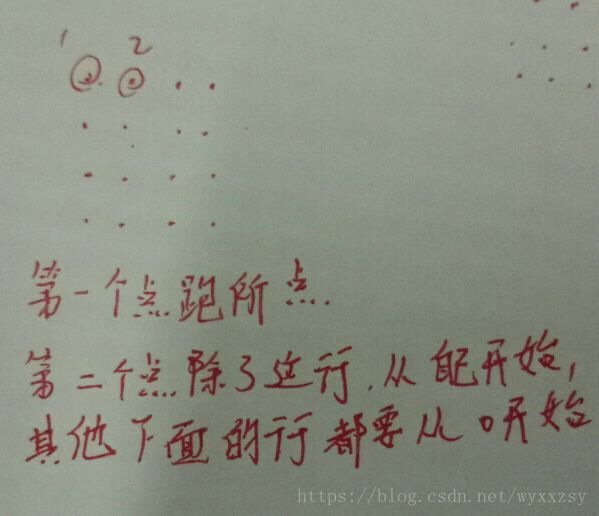 1 2
第一个点跑所点
第二个点除了这行,从自己开始,
其他下面的行都要从0开始
https://blog.csdn.net/wyxxzsy